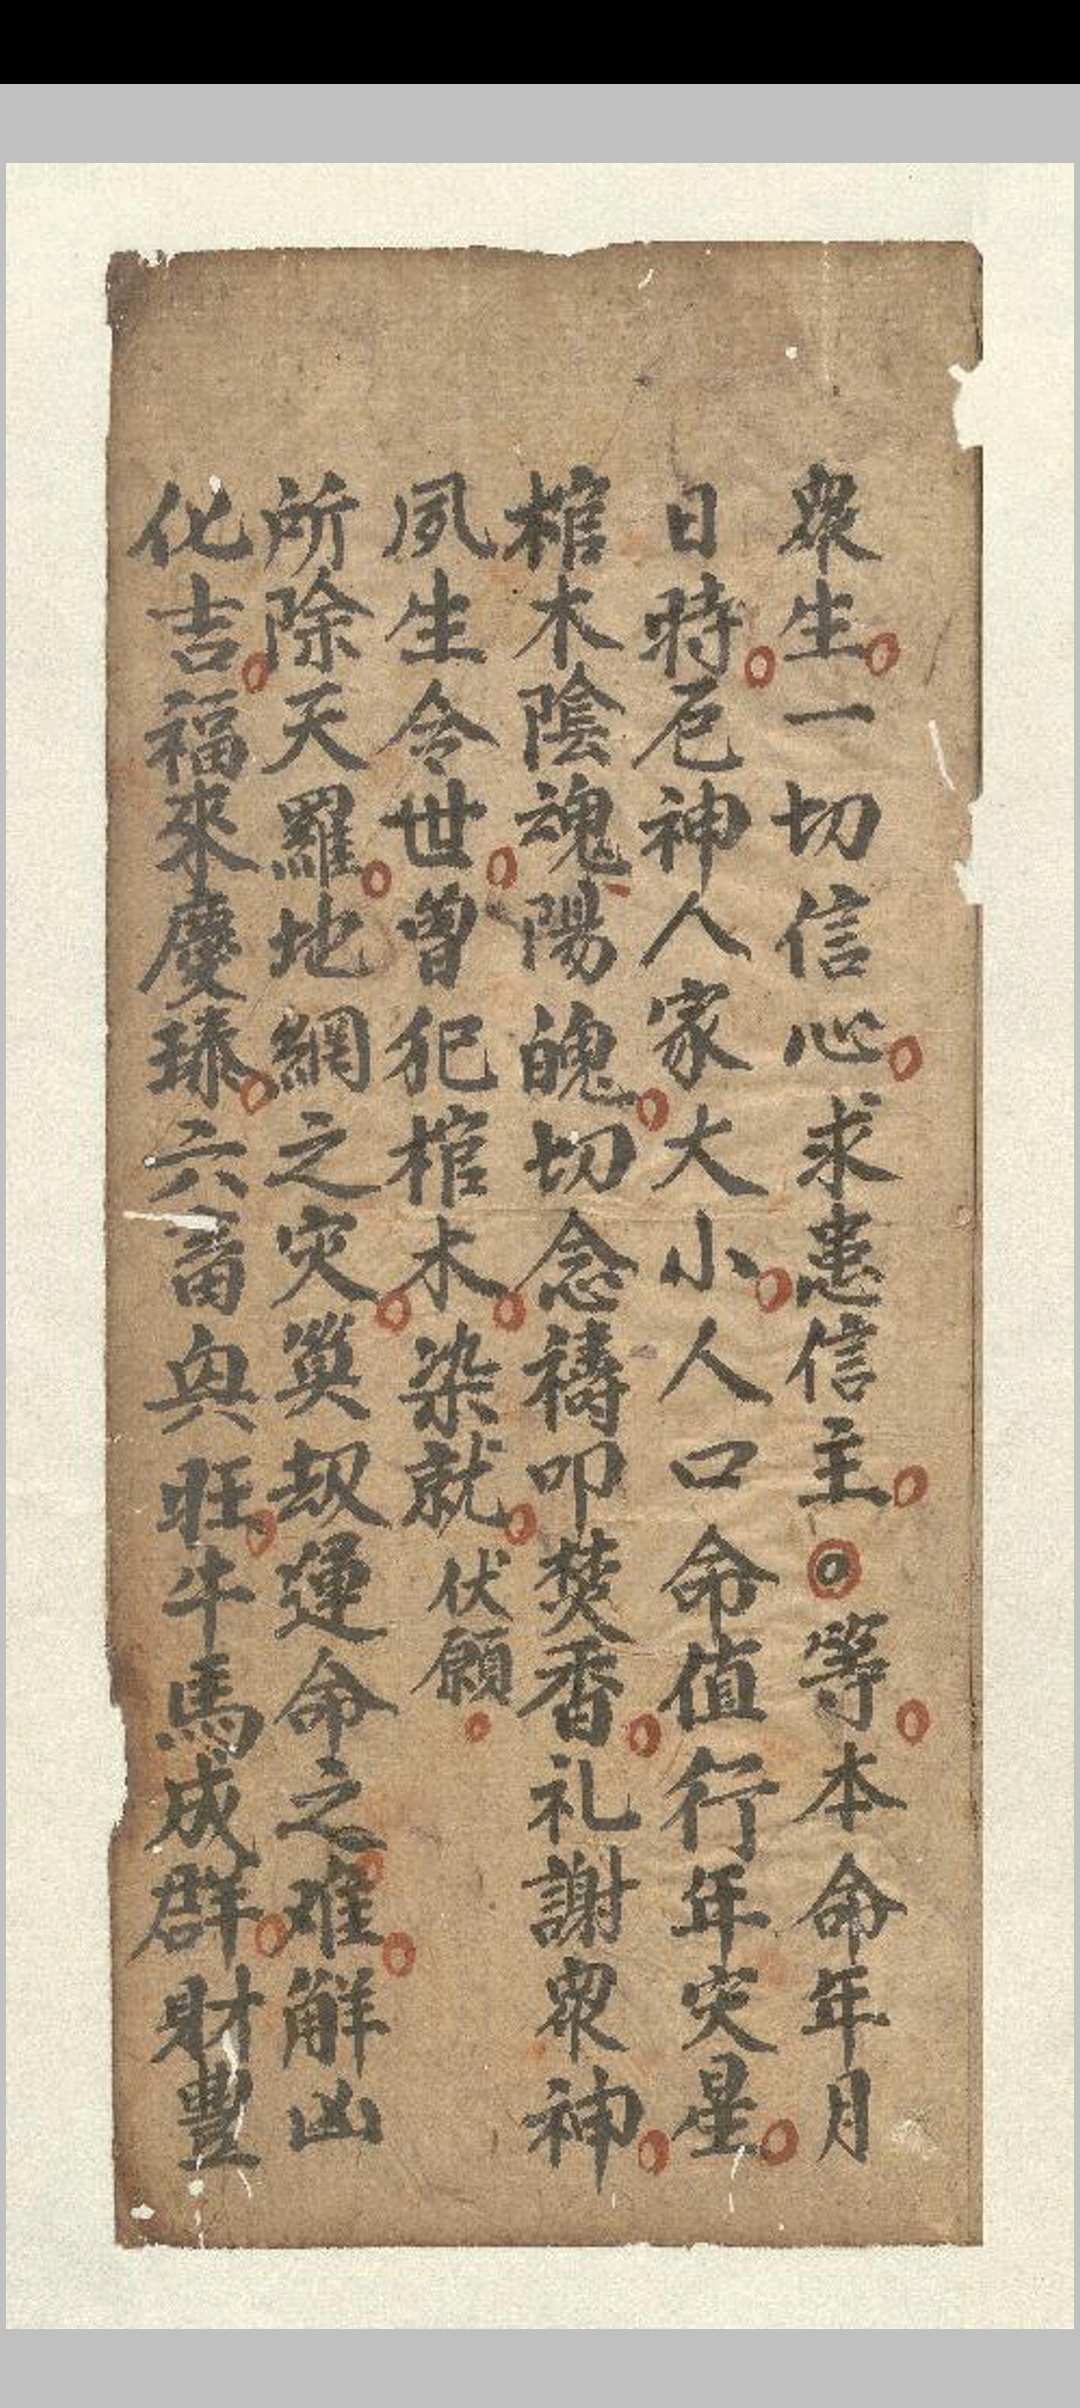 衆生一切信心求恚信主◎等本命年月
日時厄神人家大小人口命值行年灾星
棺木陰魂陽魄切念禱叩焚香礼謝眾神
夙生令世曾犯棺木染就伏願
所除天羅地網之灾筭劫運命之难解凶
化吉福來慶臻六畜興旺牛馬成群財豐